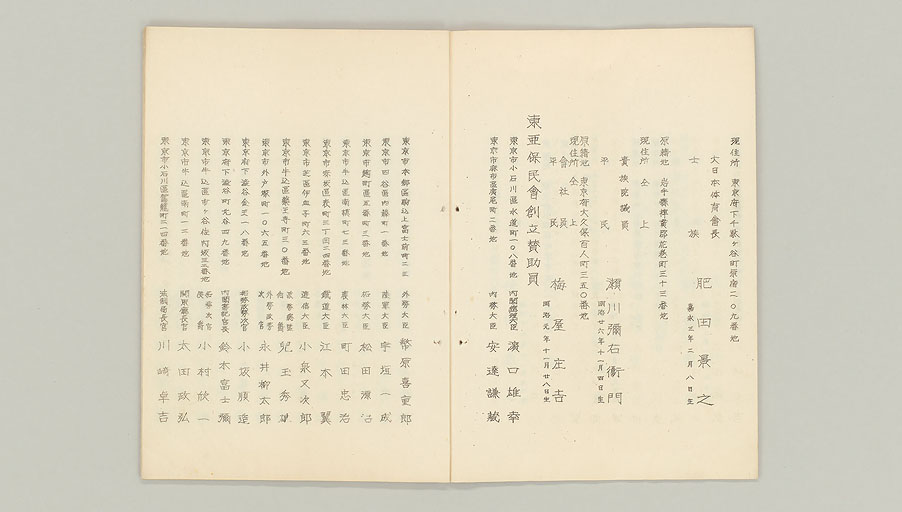 現住所 東京府下千駄ヶ谷町原宿二〇九番地
大日本体育會長
士族 肥田景之
嘉永三年二月八日生
原籍地 岩手縣 郡 町三十三番地
現住所 仝上
貴族院議員
平民 瀬川彌右衞門
明治廿六年十一月四日生
原籍地 東京府大久保百人町三五〇番地
現住所 仝上
會社員
平民 梅屋庄吉
明治元年十一月廿八日生
東亜保民會創立賛助員
東京市小石川區水道町一〇八番地 内閣總理大臣 濱口雄幸
東京市麻布區廣尾町二番地 内務大臣 安達謙蔵
東京市本郷區駒込上富士前町 外務大臣 幣原喜重郎
東京市四谷區内藤町一番地 陸軍大臣 宇垣一成
東京市麹町區五番町三番地 松田源治
東京市牛込區南榎町七三番地 農林大臣 町田忠治
東京市赤坂區表町三丁目二四番地 鐵道大臣 江木翼
東京市芝區伊皿子町六三番地 逓信大臣 小泉又次郎
東京市牛込區藥王寺町三〇番地 兒玉秀雄
東京市外戸塚町一〇六五番地 外務政務次官 永井柳太郎
東京府下澁谷金王一八番地 小坂順造
東京府下澁谷町 四九番地 内閣書記官長 鈴木富士彌
東京市牛込區市ヶ谷 番地 小村欣一
東京市牛込區南町一二番地 關東廳長官 太田政弘
東京市小石川區駕籠町二一四番地 法制局長官 川崎卓吉